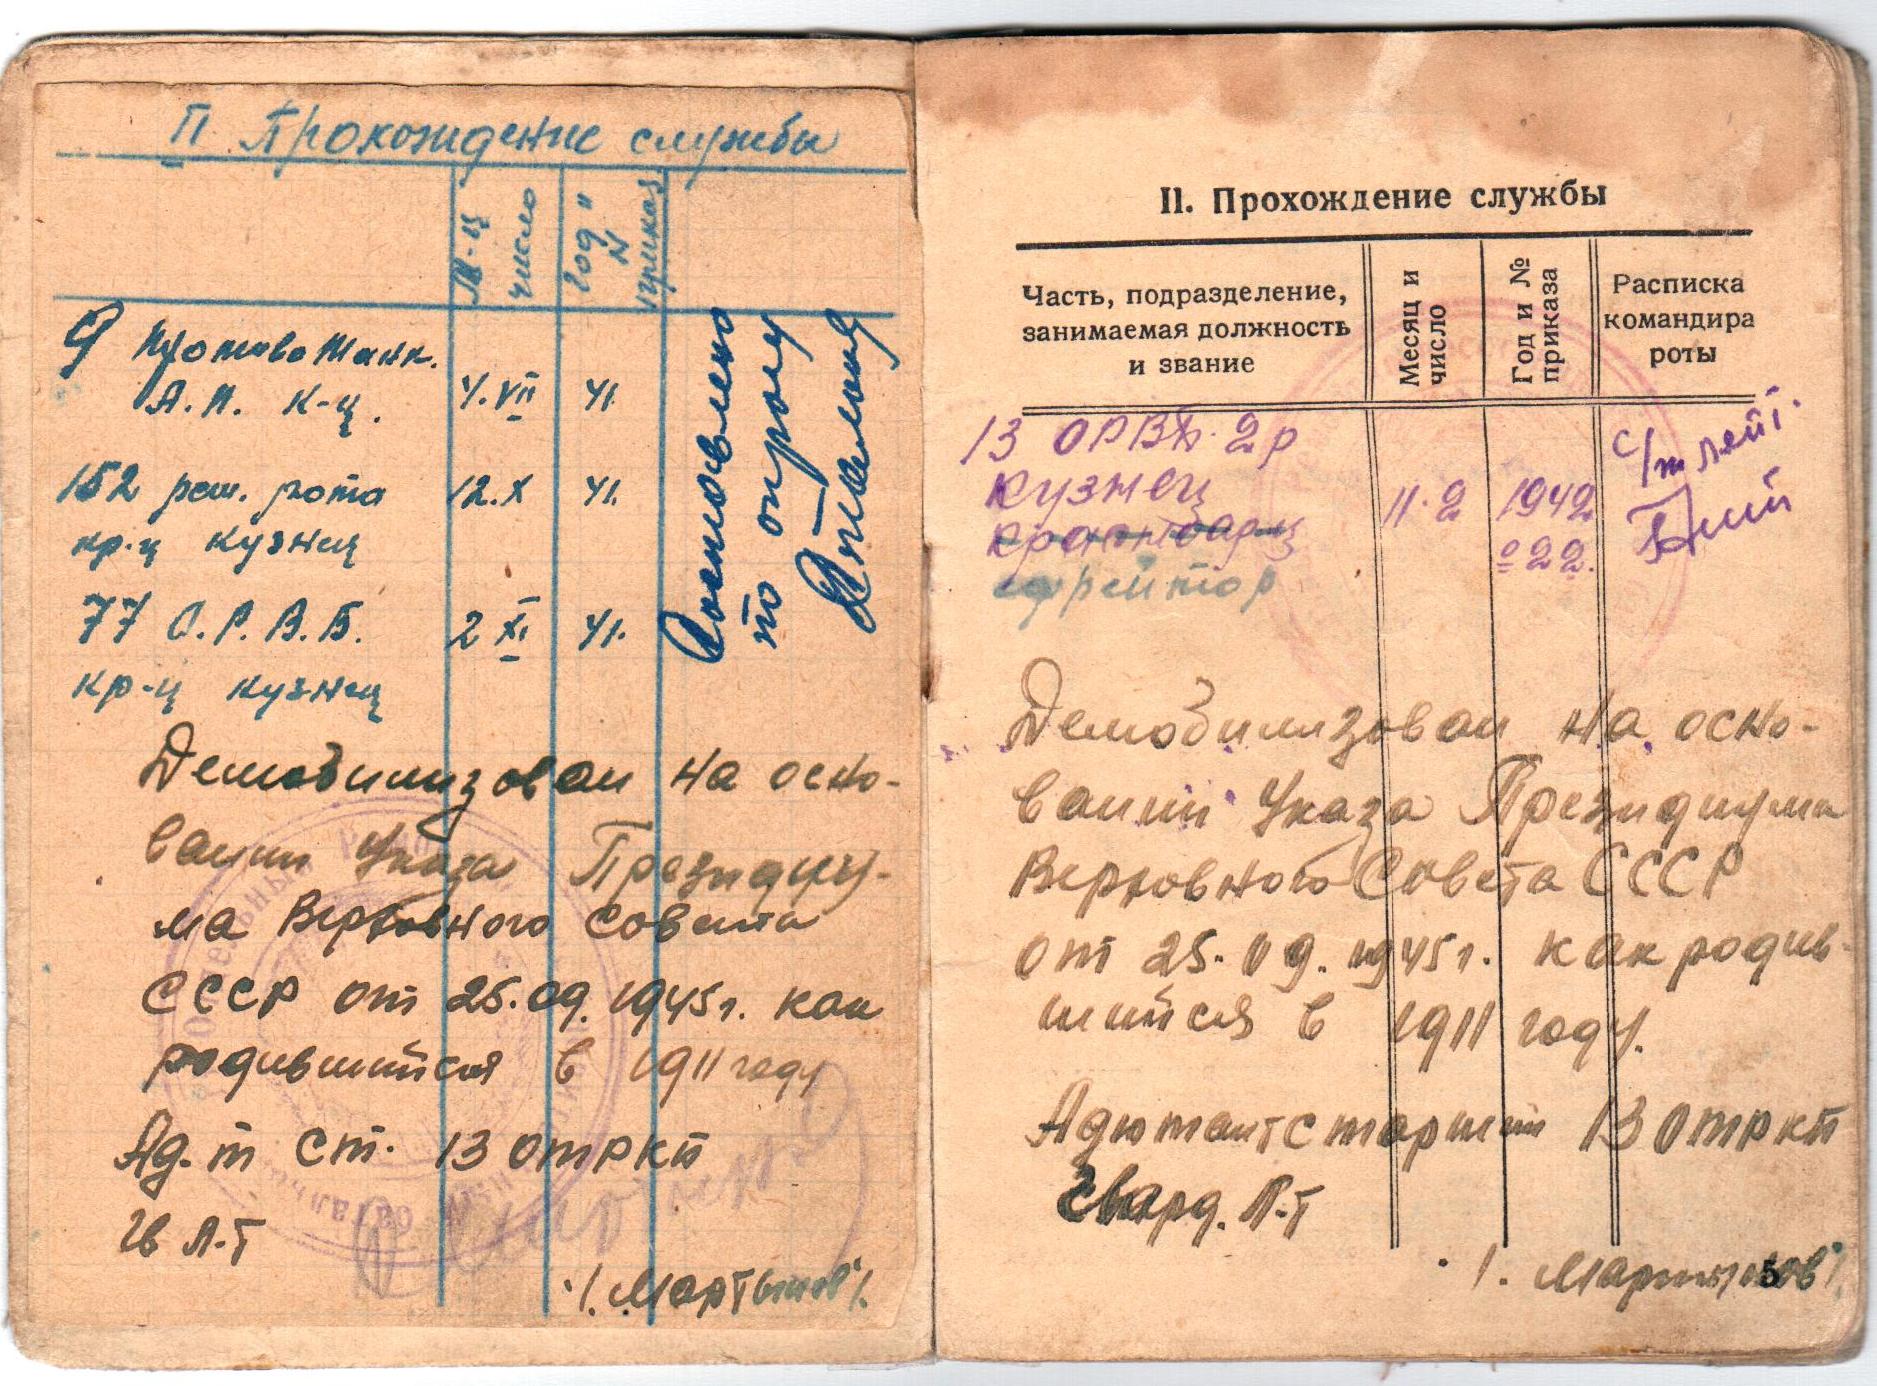 II Прохождение службы
М-ц число
Год и N приказа
9 Противотанк.
А.П. к-ц.
4.VII
41.
152 реш. рота
12.X
41.
кр-ц кузнец
77 О.Р.В.Б.
2 XI
41.
кр-ц кузнец
по опросу
Демобилизован на осно-
вании Указа Президиу-
ма Верховного Совета
СССР от 25.09.1945г. как
родившийся в 1911 году
Ад-т ст. 13 отркп
Гв Л-т
/. Мартынов /.
II. Прохождение службы
Часть, подразделение,
занимаемая должность
и звание
Месяц и
число
Год и №
приказа
Расписка
командира
роты
13 ОРВБ. 2р
кузнец
11.2
1942
022.
с/т лейт.
ефрейтор
Демобилизован на осно-
вании Указа Президиума
Верховного Совета СССР
от 25.09.1945г. как родив-
шийся в 1911 году.
Адютант старший 13 отркп
Гвард. Л-т
/. Мартынов /.
5